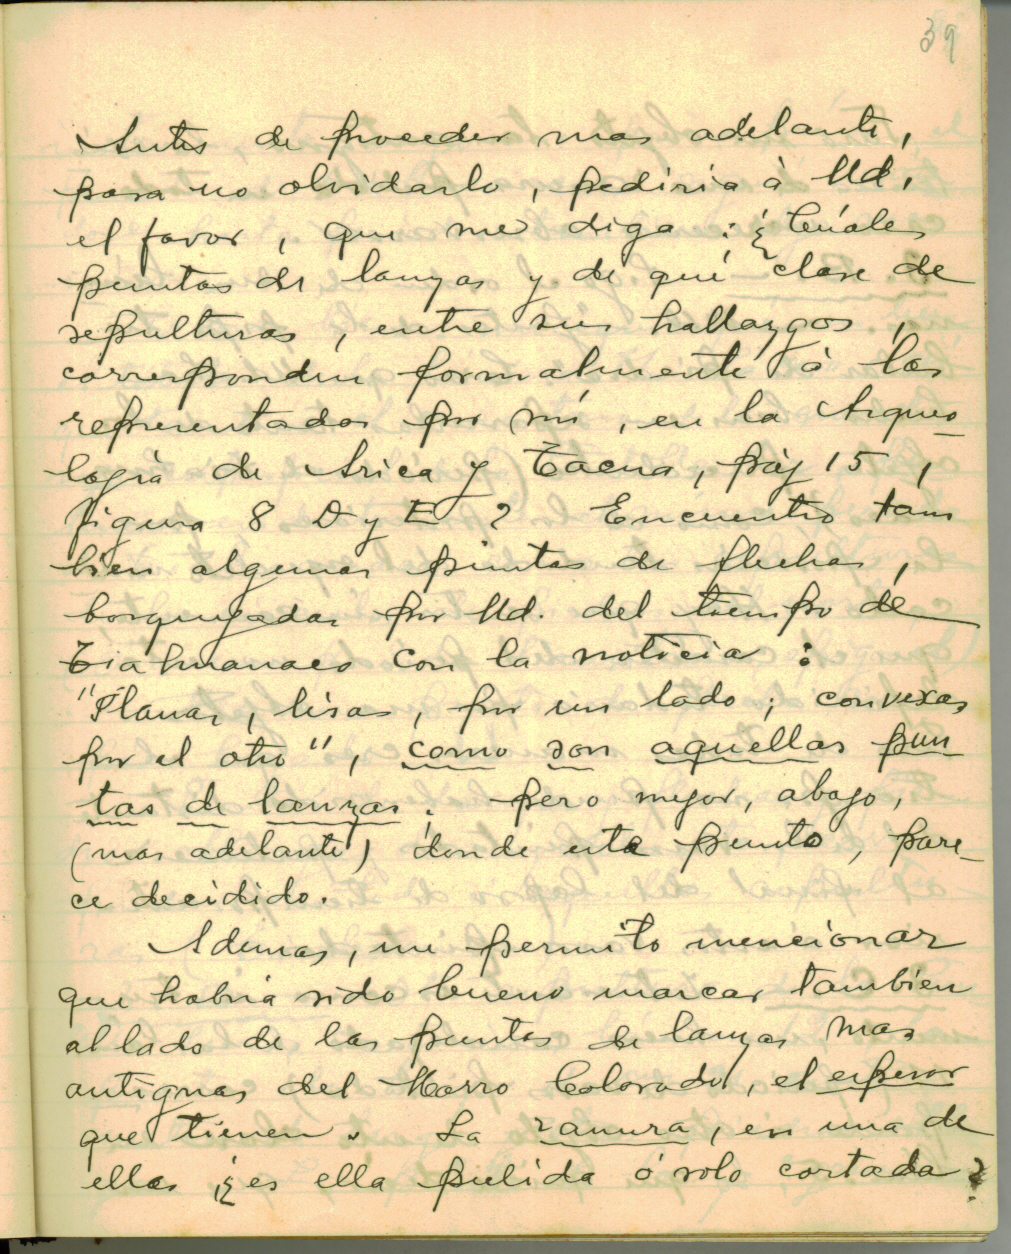 39
Antes de proceder mas adelante,
para no olvidarlo, pediria à Ud,
el favor, que me diga: ¿Cuáles
puntas de lanzas y de qué clase de
sepulturas, entre sus hallazgos,
corresponden formalmente à las
representadas por mí, en la Arqueo-
logía de Arica y Tacna, páj 15,
figura 8 D y E? Encuentro tam
bien algunas puntas de flechas,
bosquejadas por Ud. del tiempo de
Tiahuanaco con la noticia:
"Planas, lisas, por un lado; convexas
por el otro", como son aquellas pun
tas de lanzas; pero mejor, abajo,
(mas adelante) donde este punto, pare-
ce decidido.
Ademas, me permito mencionar
que habria sido bueno marcar tambien
al lado de las puntas de lanzas mas
antiguas del Morro Colorado, el espesor
que tienen. La ranura, en una de
ellas ¿es ella pulida ó solo cortada?